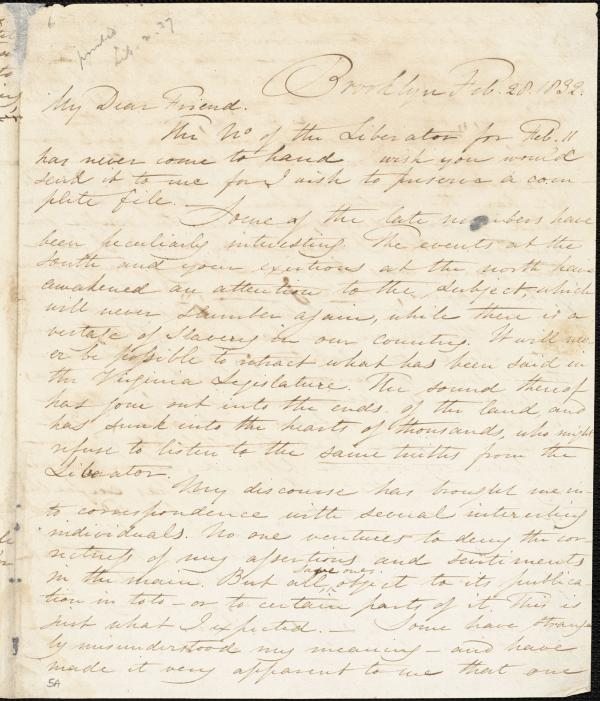 Brooklyn Feb. 28. 1832.
My Dear Friend.
The No of the Liberator for Feb. 11
has never come to hand wish you would
send it to me for I wish to preserve a com-
plete file. —
Some of the late numbers have
been peculiarly interesting. The events at the
south and your exertions at the north have
awakened an attention to the subject, which
will never slumber again, while there is a
vestage of Slavery in our country. It will nev-
er be possible to retract what has been said in
the Virginia Legislature. The sound thereof
has gone out into the ends of the land, and
has sunk into the hearts of thousands, who might
refuse to listen to the same truths from the
Liberator.
My discourse has brought me in-
to correspondence with several interesting
individuals. No one ventures to deny the cor-
rectness of my assertions and sentiments
in the main. But all, save one, object to its publica-
tion in toto — or to certain parts of it. This is
just what I expected. — Some have strange-
ly misunderstood my meaning — and have
made it very apparent to me that one
5A